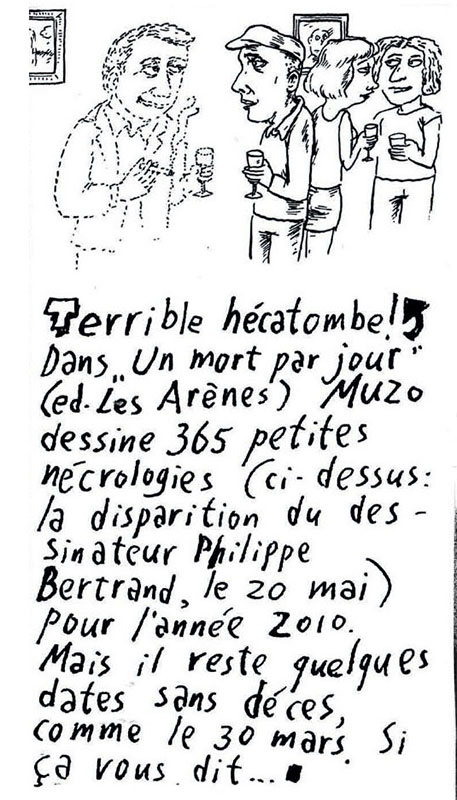 Terrible hécatombe!
Dans „Un mort par jour"
(ed. Les Arènes) Muzo
dessine 365 petites
nécrologies (ci-dessus:
la disparition du des-
sinateur Philippe
Bertrand, le 20 mai)
pour l'année 2010.
Mais il reste quelques
dates sans décès,
comme le 30 mars. Si
ça vous dit...